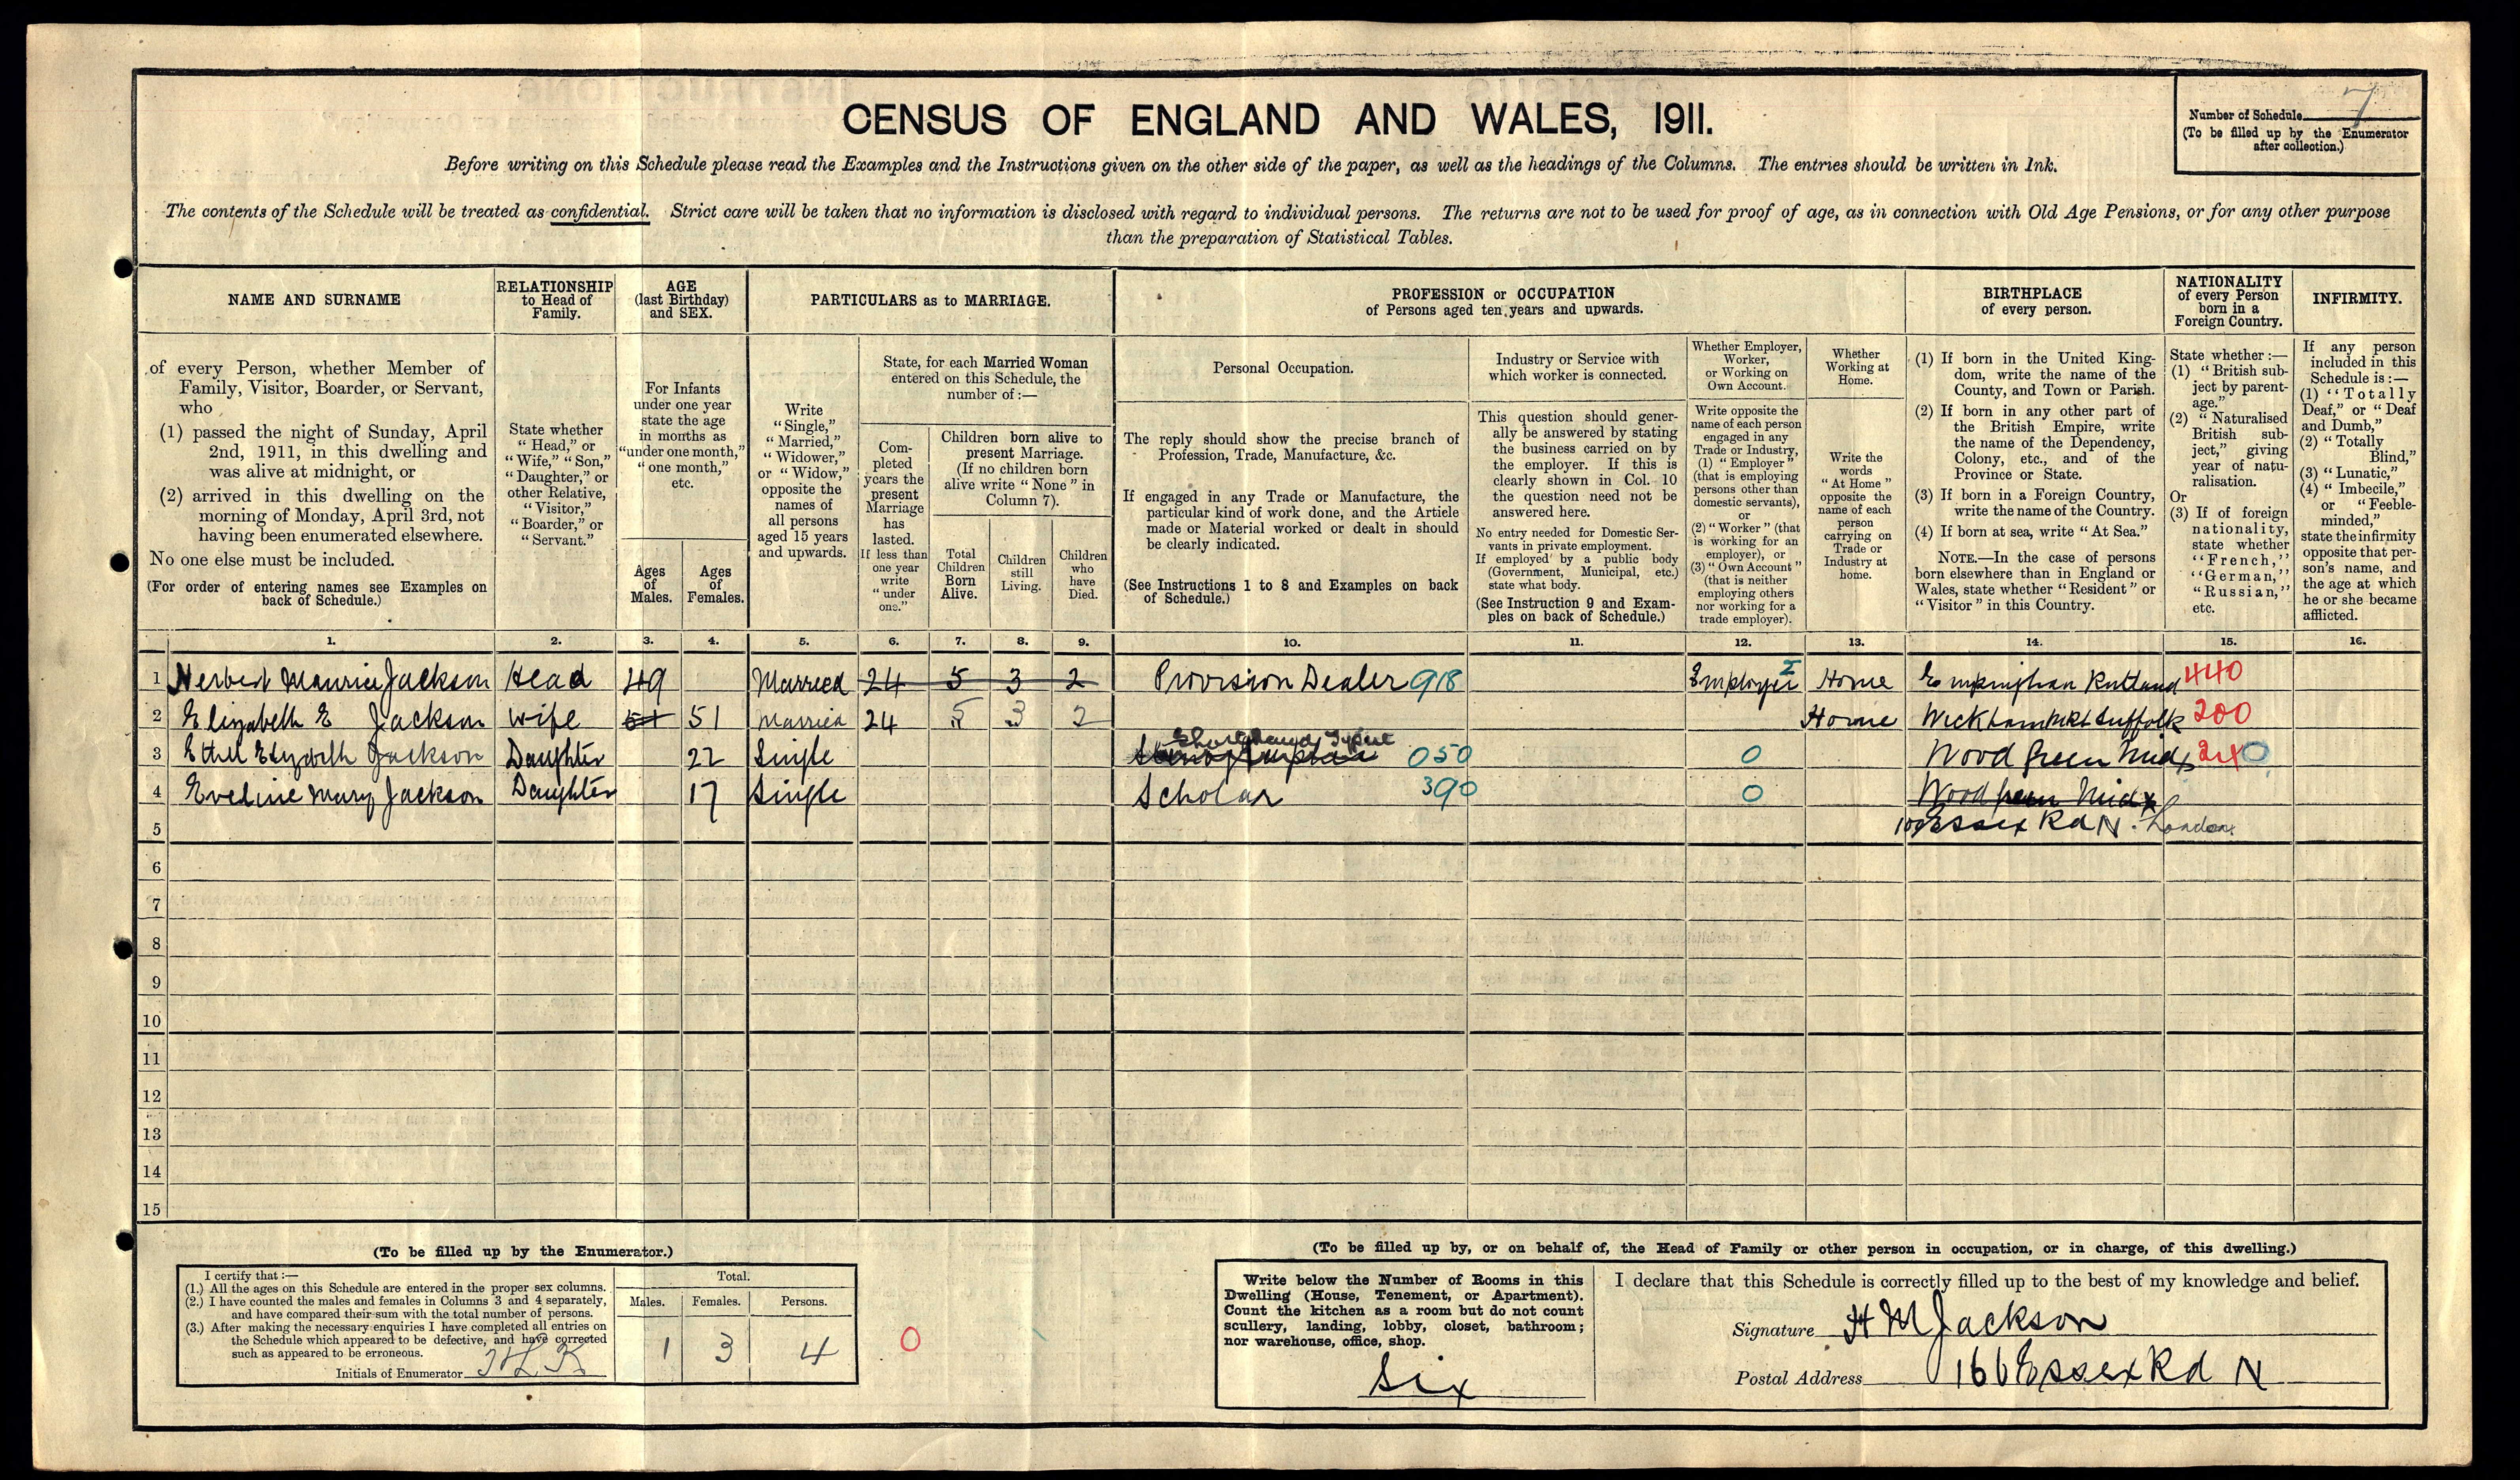 CENSUS OF ENGLAND AND WALES, 1911.
Number of Schedule 7
(To be filled up by the Enumerator
after collection.)
Before writing on this Schedule please read the Examples and the Instructions given on the other side of the paper, as well as the headings of the Columns. The entries should be written in Ink.
The contents of the Schedule will be treated as confidential. Strict care will be taken that no information is disclosed with regard to individual persons. The returns are not to be used for proof of age, as in connection with Old Age Pensions, or for any other purpose
than the preparation of Statistical Tables.
NAME AND SURNAME
RELATIONSHIP
to Head of
Family.
AGE
(last Birthday)
and SEX.
PARTICULARS as to MARRIAGE.
PROFESSION or OCCUPATION
of Persons aged ten years and upwards.
BIRTHPLACE
of every person.
NATIONALITY
of every Person
born in a
Foreign Country.
INFIRMITY.
of every Person, whether Member of
Family, Visitor, Boarder, or Servant,
who
(1) passed the night of Sunday, April
2nd, 1911, in this dwelling and
was alive at midnight, or
(2) arrived in this dwelling on the
morning of Monday, April 3rd, not
having been enumerated elsewhere.
No one else must be included.
(For order of entering names see Examples on
back of Schedule.)
State whether
"Head," or
"Wife," "Son,"
"Daughter," or
other Relative,
"Visitor,"
"Boarder," or
"Servant."
For Infants
under one year
state the age
in months as
"under one month,"
"one month,"
etc.
Ages
of
Males.
Ages
of
Females.
Write
"Single,"
"Married,"
"Widower,"
or "Widow,"
opposite the
names of
all persons
aged 15 years
and upwards.
State, for each Married Woman
entered on this Schedule, the
number of :—
Com-
pleted
years the
present
Marriage
has
lasted.
If less than
one year
write
"under
one."
Children born alive to
present Marriage.
(If no children born
alive write "None" in
Column 7).
Total
Children
Born
Alive.
Children
still
Living.
Children
who
have
Died.
Personal Occupation.
The reply should show the precise branch of
Profession, Trade, Manufacture, &c.
If engaged in any Trade or Manufacture, the
particular kind of work done, and the Article
made or Material worked or dealt in should
be clearly indicated.
(See Instructions 1 to 8 and Examples on back
of Schedule.)
Industry or Service with
which worker is connected.
This question should gener-
ally be answered by stating
the business carried on by
the employer. If this is
clearly shown in Col. 10
the question need not be
answered here.
No entry needed for Domestic Ser-
vants in private employment.
If employed by a public body
(Government, Municipal, etc.)
state what body.
(See Instruction 9 and Exam-
ples on back of Schedule.)
Whether Employer,
Worker,
or Working on
Own Account.
Write opposite the
name of each person
engaged in any
Trade or Industry,
(1) "Employer"
(that is employing
persons other than
domestic servants),
or
(2) "Worker" (that
is working for an
employer), or
(3) "Own Account"
(that is neither
employing others
nor working for a
trade employer).
Whether
Working at
Home.
Write the
words
"At Home"
opposite the
name of each
person
carrying on
Trade or
Industry at
home.
(1) If born in the United King-
dom, write the name of the
County, and Town or Parish.
(2) If born in any other part of
the British Empire, write
the name of the Dependency,
Colony, etc., and of the
Province or State.
(3) If born in a Foreign Country,
write the name of the Country.
(4) If born at sea, write "At Sea."
NOTE.—In the case of persons
born elsewhere than in England or
Wales, state whether "Resident" or
"Visitor" in this Country.
State whether :—
(1) "British sub-
ject by parent-
age."
(2) "Naturalised
British sub-
ject," giving
year of natu-
ralisation.
Or
(3) If of foreign
nationality,
state whether
"French,"
"German,"
"Russian,"
etc.
If any person
included in this
Schedule is :—
(1) "Totally
Deaf," or "Deaf
and Dumb,"
(2) "Totally
Blind,"
(3) "Lunatic,"
(4) "Imbecile,"
or "Feeble-
minded,"
state the infirmity
opposite that per-
son's name, and
the age at which
he or she became
afflicted.
1. 2. 3. 4. 5. 6. 7. 8. 9. 10. 11. 12. 13. 14. 15. 16.
1 Herbert Maurice Jackson Head 49 Married 24 5 3 2 Provision Dealer 918 Employer Home Empingham Rutland 440
2 Elizabeth E Jackson Wife 51 51 Married 24 5 3 2 Home Wickham Mkt Suffolk 200
Shorthand Typist
3 Ethel Elizabeth Jackson Daughter 22 Single 050 0 Wood Green Midx 240
4 Eveline Mary Jackson Daughter 17 Single Scholar 390 0 Wood Green Midx
5 Essex Rd N. London
6
7
8
9
10
11
12
13
14
15
(To be filled up by the Enumerator.)
I certify that :—
(1.) All the ages on this Schedule are entered in the proper sex columns.
(2.) I have counted the males and females in Columns 3 and 4 separately,
and have compared their sum with the total number of persons.
(3.) After making the necessary enquiries I have completed all entries on
the Schedule which appeared to be defective, and have corrected
such as appeared to be erroneous.
Initials of Enumerator
Total.
Males. Females. Persons.
1 3 4
0
(To be filled up by, or on behalf of, the Head of Family or other person in occupation, or in charge, of this dwelling.)
Write below the Number of Rooms in this
Dwelling (House, Tenement, or Apartment).
Count the kitchen as a room but do not count
scullery, landing, lobby, closet, bathroom;
nor warehouse, office, shop.
Six
I declare that this Schedule is correctly filled up to the best of my knowledge and belief.
Signature H M Jackson
Postal Address 166 Essex Rd N